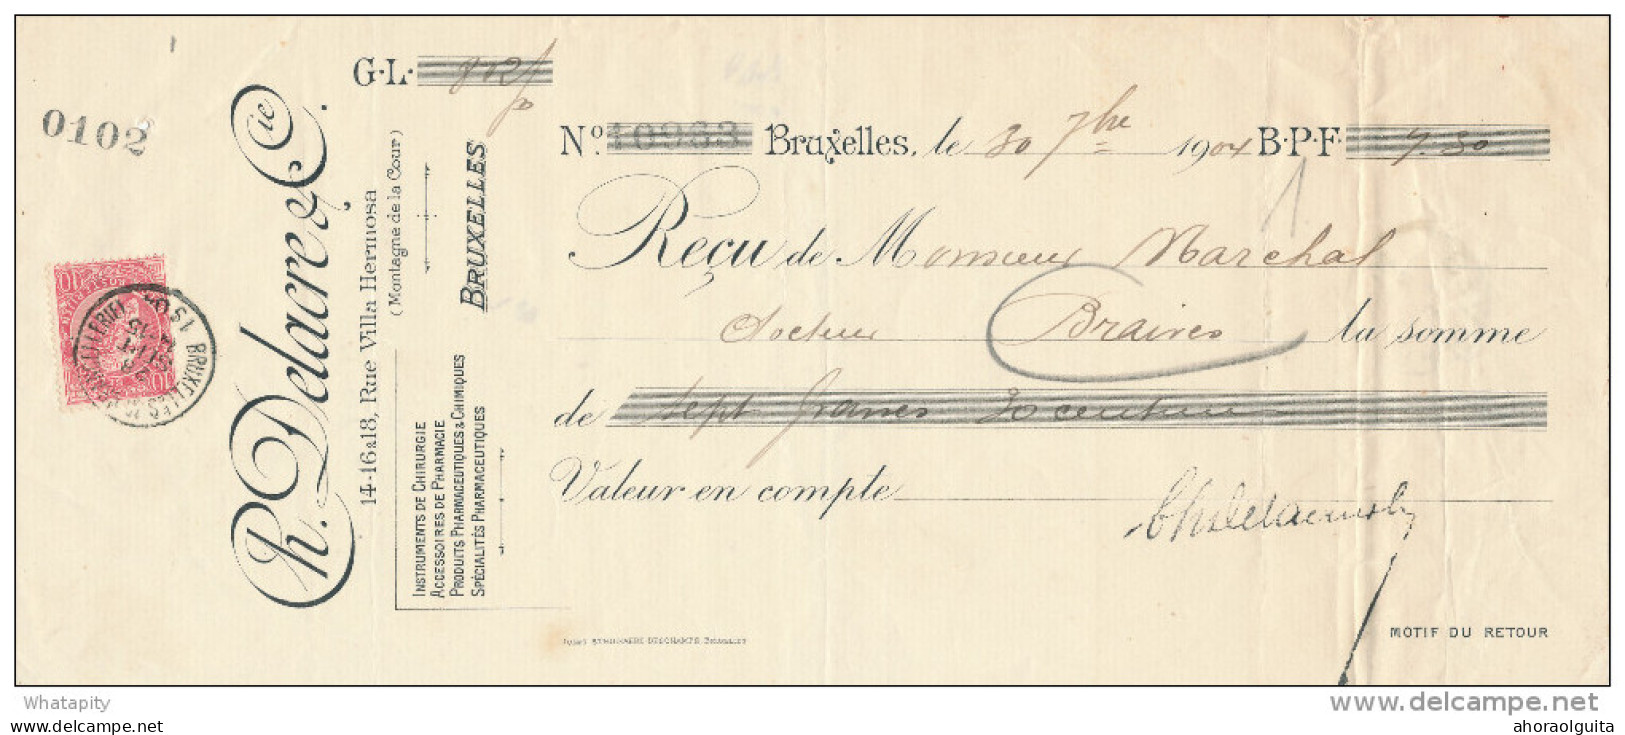 0102
Ch. Delacre & Cie.
14-16 à 18, Rue Villa Hermosa
(Montagne de la Cour)
BRUXELLES
INSTRUMENTS DE CHIRURGIE
ACCESSOIRES DE PHARMACIE
PRODUITS PHARMACEUTIQUES & CHIMIQUES
SPÉCIALITÉS PHARMACEUTIQUES
G.L.
No. 10963 Bruxelles, le 30 7bre 1904 B.P.F. 7.30
Reçu de Monsieur Marchal
docteur Braives la somme
de sept francs 30 centimes
Valeur en compte
MOTIF DU RETOUR
BRUXELLES
10
10
Whatapity
www.delcampe.net
ahoraolguita